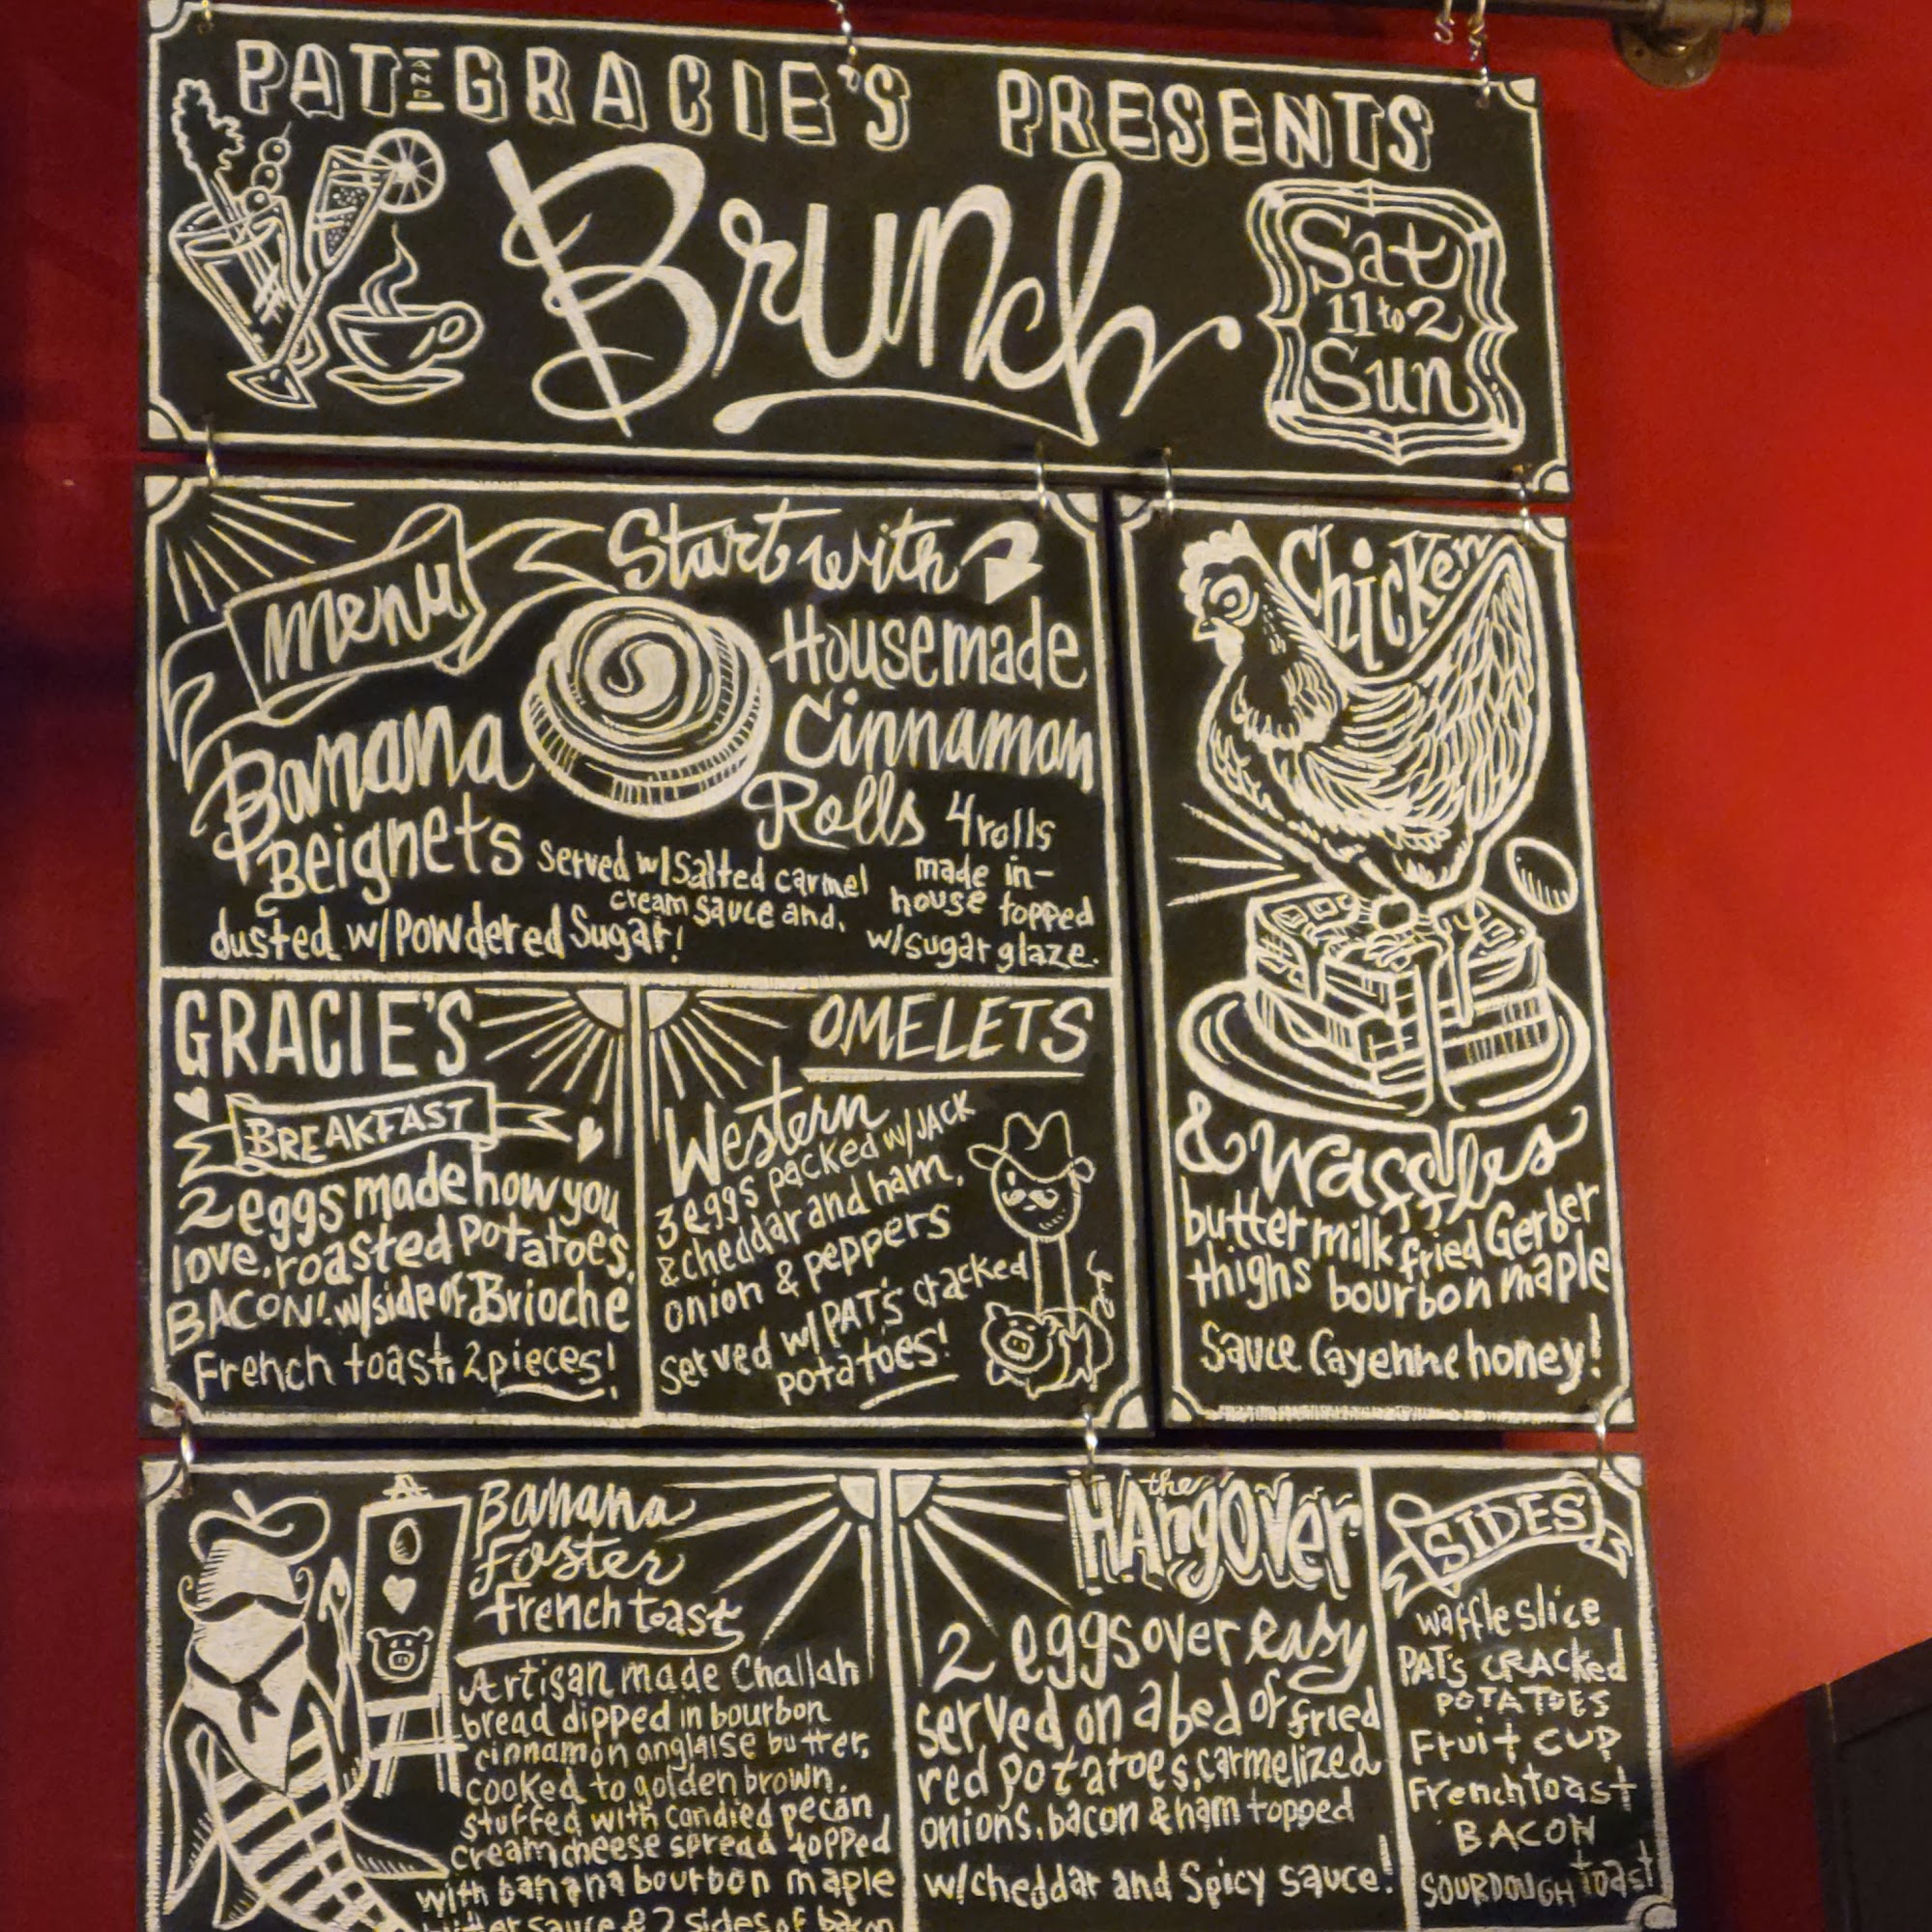 PAT AND GRACIE'S PRESENTS
Brunch
Sat
11 to 2
Sun
Menu
Start with
Housemade
Cinnamon
Rolls 4 rolls
made in-
house topped
w/sugar glaze.
Banana
Beignets served w/salted carmel
cream sauce and,
dusted w/Powdered Sugar!
GRACIE'S
BREAKFAST
2 eggs made how you
love, roasted potatoes,
BACON! w/side of Brioche
French toast, 2 pieces!
OMELETS
Western
3 eggs packed w/JACK
& cheddar and ham,
onion & peppers
served w/PAT'S cracked
potatoes!
Chicken
& Waffles
buttermilk fried Gerber
thighs bourbon maple
Sauce Cayenne honey!
Banana
Foster
french toast
Artisan made Challah
bread dipped in bourbon
cinnamon anglaise butter,
cooked to golden brown,
stuffed with candied pecan
cream cheese spread topped
with banana bourbon maple
butter sauce & 2 sides of bacon
the
HAngOVer
2 eggs over easy
served on a bed of fried
red potatoes, carmelized
onions, bacon & ham topped
w/cheddar and Spicy sauce!
SIDES
waffle slice
PAT'S CRACKed
POTATOES
Fruit CUP
French toast
BACON
SOURDOUGH toast